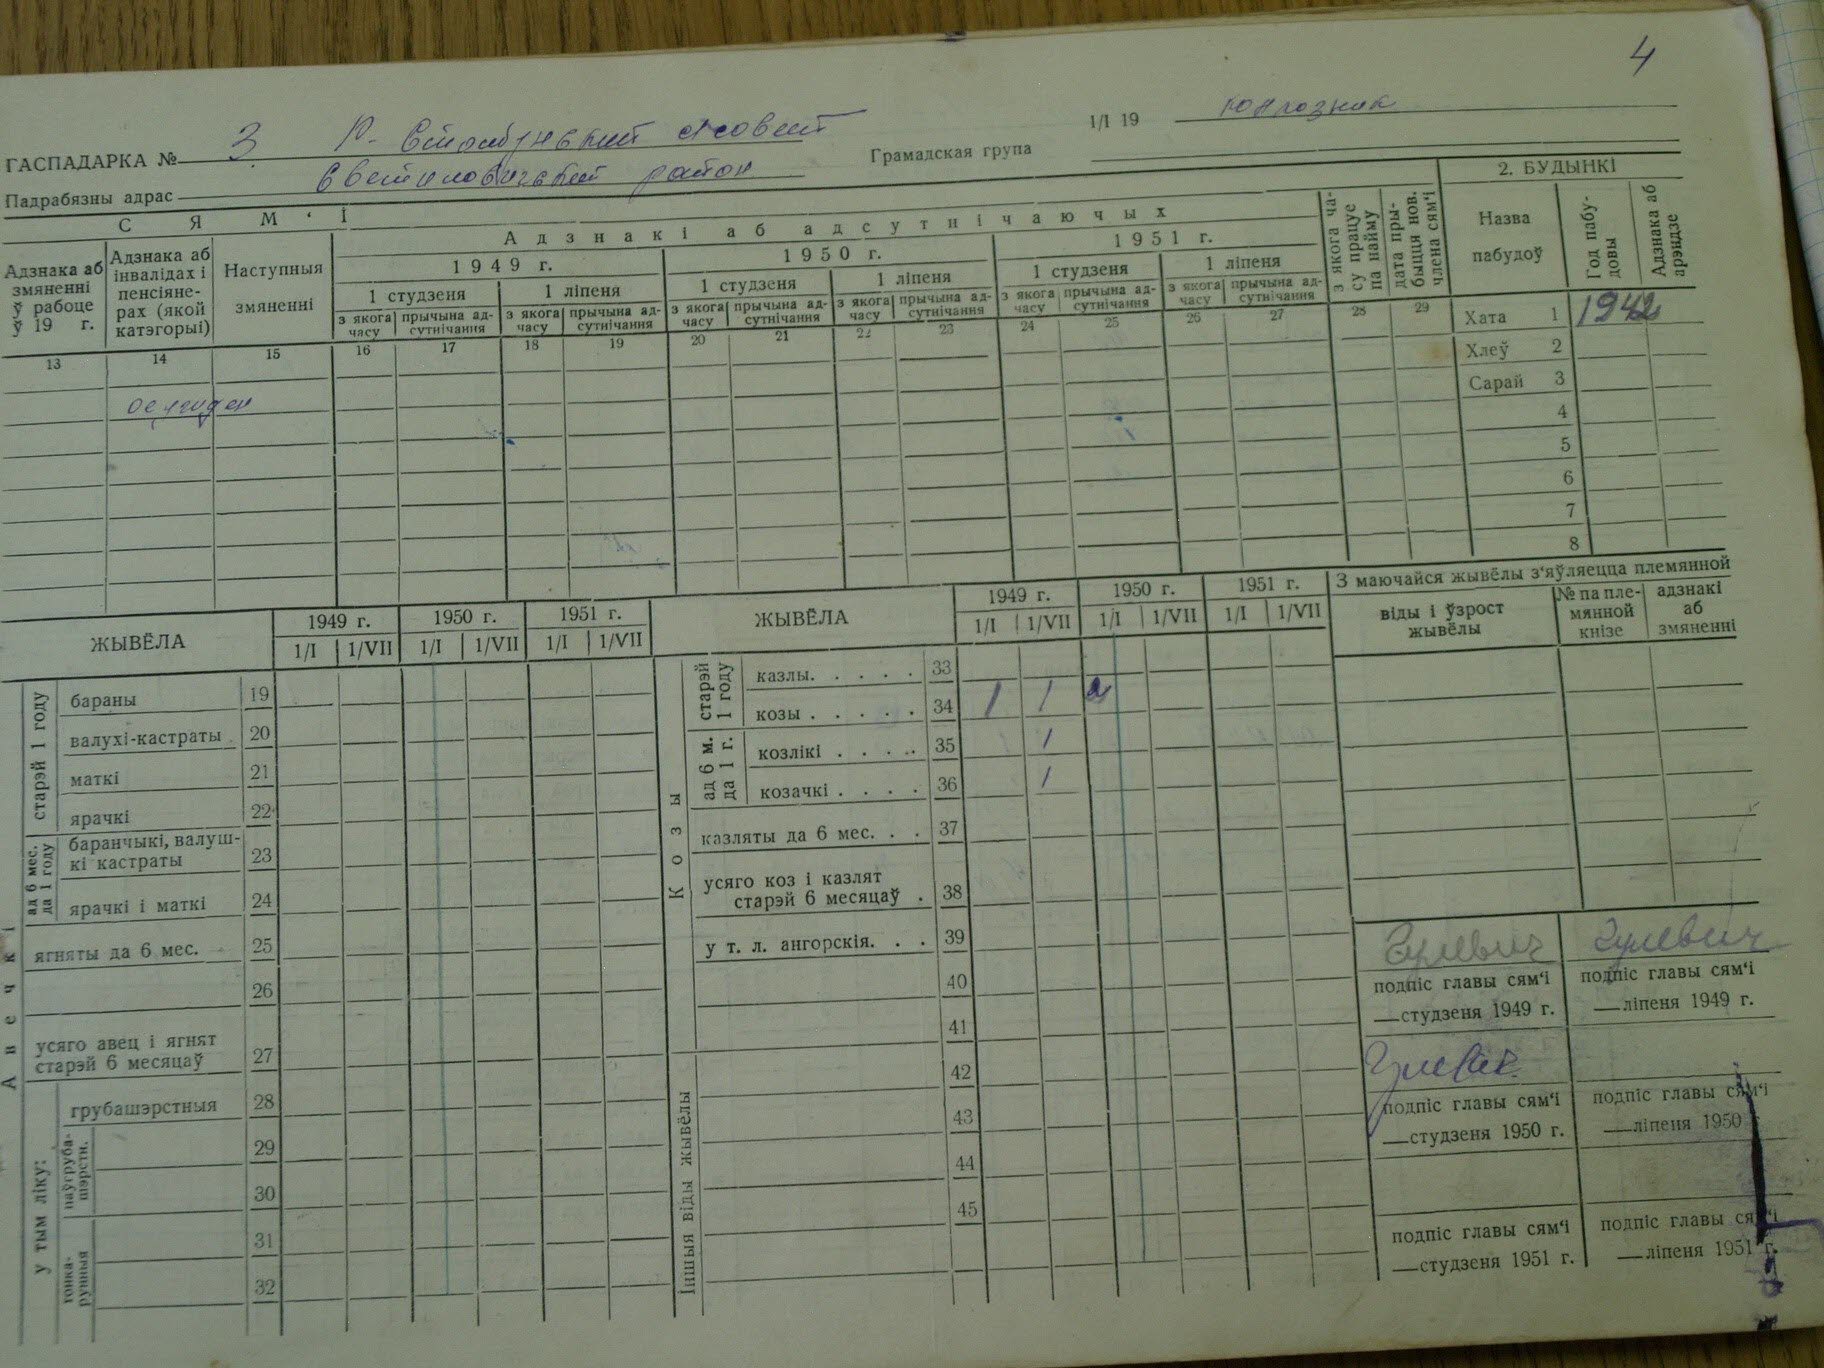 4
ГАСПАДАРКА № 3
1/I 19 колхозник
Падрабязны адрас район
Грамадская група
СЯМ‘І
Адзнака аб змяненні ў рабоце ў 19 г.
Адзнака аб інвалідах і пенсіянерах (якой катэгорыі)
Наступныя змяненні
Адзнакі аб адсутнічаючых
1949 г. 1950 г. 1951 г.
1 студзеня 1 ліпеня 1 студзеня 1 ліпеня 1 студзеня 1 ліпеня
з якога часу прычына адсутнічання з якога часу прычына адсутнічання з якога часу прычына адсутнічання з якога часу прычына адсутнічання з якога часу прычына адсутнічання з якога часу прычына адсутнічання
з якога часу працуе па найму
дата прыбыцця нов. члена сям‘і
13 14 15 16 17 18 19 20 21 22 23 24 25 26 27 28 29
2. БУДЫНКІ
Назва пабудоў
Год пабудовы
Адзнака аб арэндзе
Хата 1 1942
Хлеў 2
Сарай 3
4
5
6
7
8
ЖЫВЁЛА
1949 г. 1950 г. 1951 г.
1/I 1/VII 1/I 1/VII 1/I 1/VII
Авечкі
старэй 1 году
бараны 19
валухі-кастраты 20
маткі 21
ярачкі 22
ад 6 мес. да 1 году
баранчыкі, валушкі кастраты 23
ярачкі і маткі 24
ягняты да 6 мес. 25
26
усяго авец і ягнят старэй 6 месяцаў 27
у тым ліку:
грубашэрстныя 28
паўгрубашэрстн.
29
30
тонкарунныя
31
32
ЖЫВЁЛА
1949 г. 1950 г. 1951 г.
1/I 1/VII 1/I 1/VII 1/I 1/VII
Козы
старэй 1 году
казлы. . . . . 33
козы . . . . . 34 1 1 2
ад 6 м. да 1 г.
козлікі . . . . 35 1
козачкі . . . . 36 1
казляты да 6 мес. . . 37
усяго коз і казлят старэй 6 месяцаў . 38
у т. л. ангорскія. . . 39
40
41
Іншыя віды жывёлы
42
43
44
45
З маючайся жывёлы з‘яўляецца племянной
віды і ўзрост жывёлы
№ па племянной кнізе
адзнакі аб змяненні
Гулевич Гулевич
подпіс главы сям‘і подпіс главы сям‘і
—студзеня 1949 г. —ліпеня 1949 г.
подпіс главы сям‘і подпіс главы сям‘і
—студзеня 1950 г. —ліпеня 1950 г.
подпіс главы сям‘і подпіс главы сям‘і
—студзеня 1951 г. —ліпеня 1951 г.